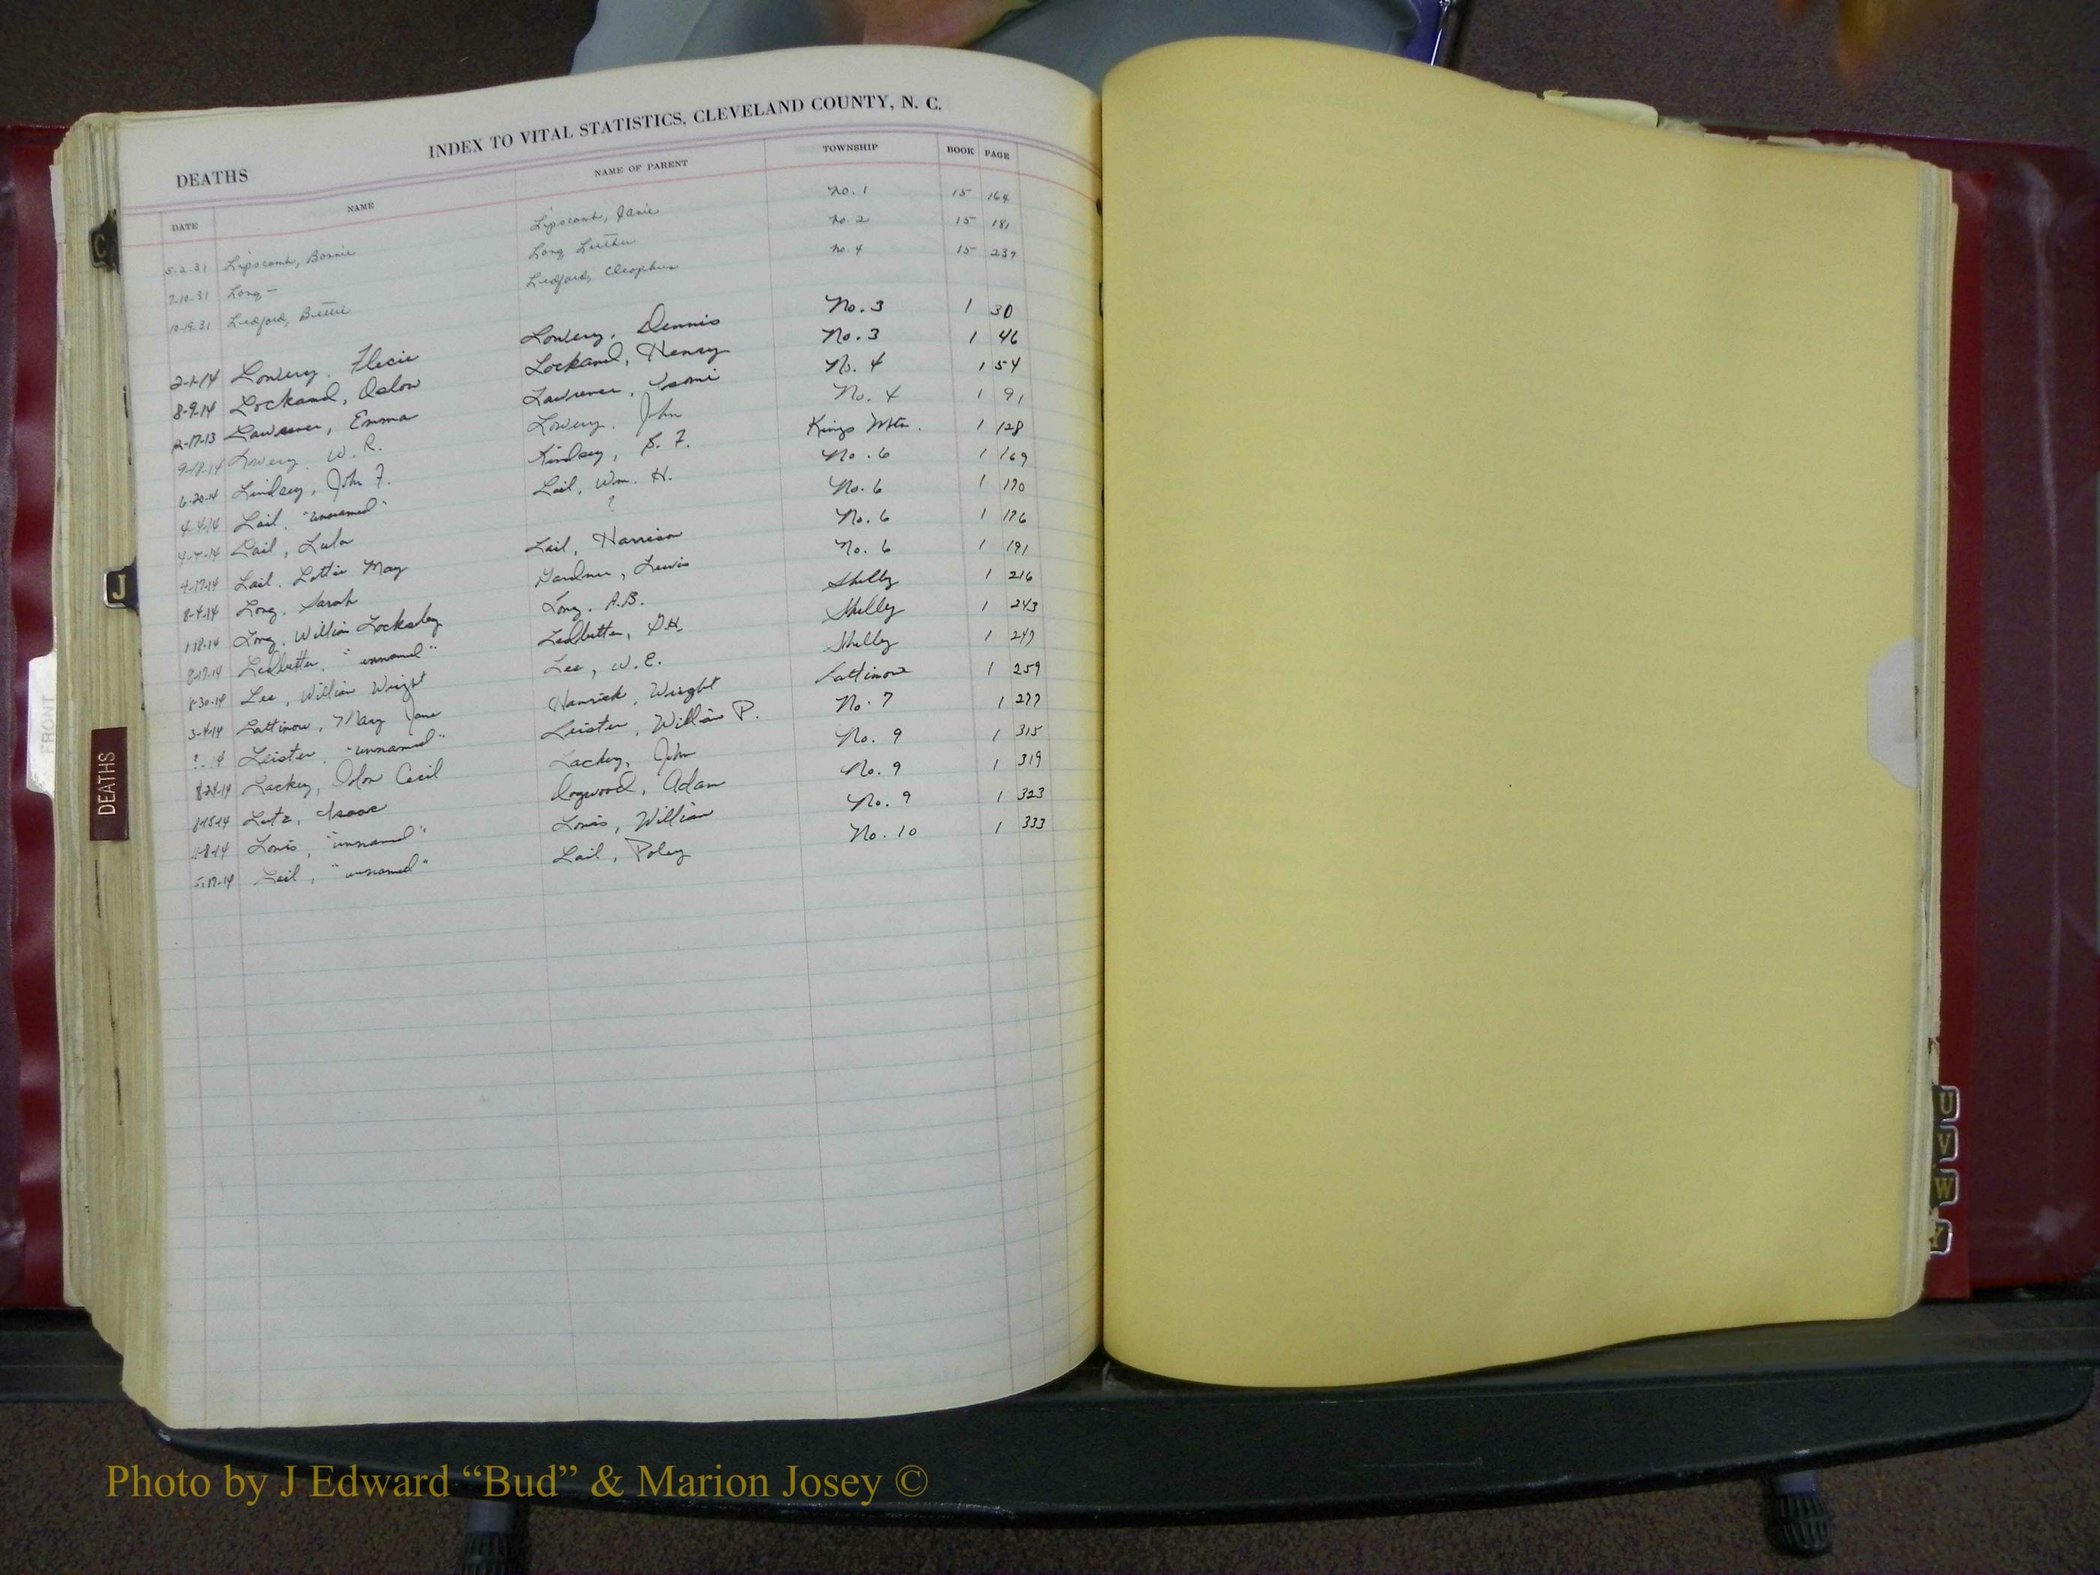 INDEX TO VITAL STATISTICS, CLEVELAND COUNTY, N. C.
DEATHS
DATE NAME NAME OF PARENT TOWNSHIP BOOK PAGE
5-2-31 Lipscomb, Bonnie Lipscomb, Janie No. 1 15 164
7-10-31 Long — Long Luther No. 2 15 181
10-19-31 Ledford, Bettie Ledford, Cleophus No. 4 15 237
2-1-14 Lowery, Flecie Lowery, Dennis No. 3 1 30
8-9-14 Lockand, Oslow Lockand, Henry No. 3 1 46
2-17-13 Lawrence, Emma Lawrence, No. 4 1 54
9-18-14 Lowery, W. R. Lowery, John No. 4 1 91
6-20-14 Lindsey, John F. Lindsey, S. F. Kings Mtn. 1 128
4-4-14 Lail, "unnamed" Lail, Wm. H. No. 6 1 169
4-7-14 Lail, Lula ? No. 6 1 170
4-17-14 Lail, Lottie May Lail, Harrison No. 6 1 176
8-4-14 Long, Sarah Gardner, Lewis No. 6 1 191
1-18-14 Long, William Locksley Long, A.B. Shelby 1 216
8-17-14 Ledbetter, "unnamed" Ledbetter, D.H. Shelby 1 243
8-30-14 Lee, William Wright Lee, W. E. Shelby 1 247
3-4-14 Lattimore, Mary Jane Hamrick, Wright Lattimore 1 259
Leister, "unnamed" Leister, William P. No. 7 1 277
8-24-14 Lackey, Odon Cecil Lackey, John No. 9 1 315
8-15-14 Lutz, Isaac Dogwood, Adam No. 9 1 319
8-14 Louis, "unnamed" Louis, William No. 9 1 323
5-17-14 Lail, "unnamed" Lail, Poley No. 10 1 333
C
J
FRONT
DEATHS
U
V
W
Y
Photo by J Edward “Bud” & Marion Josey ©